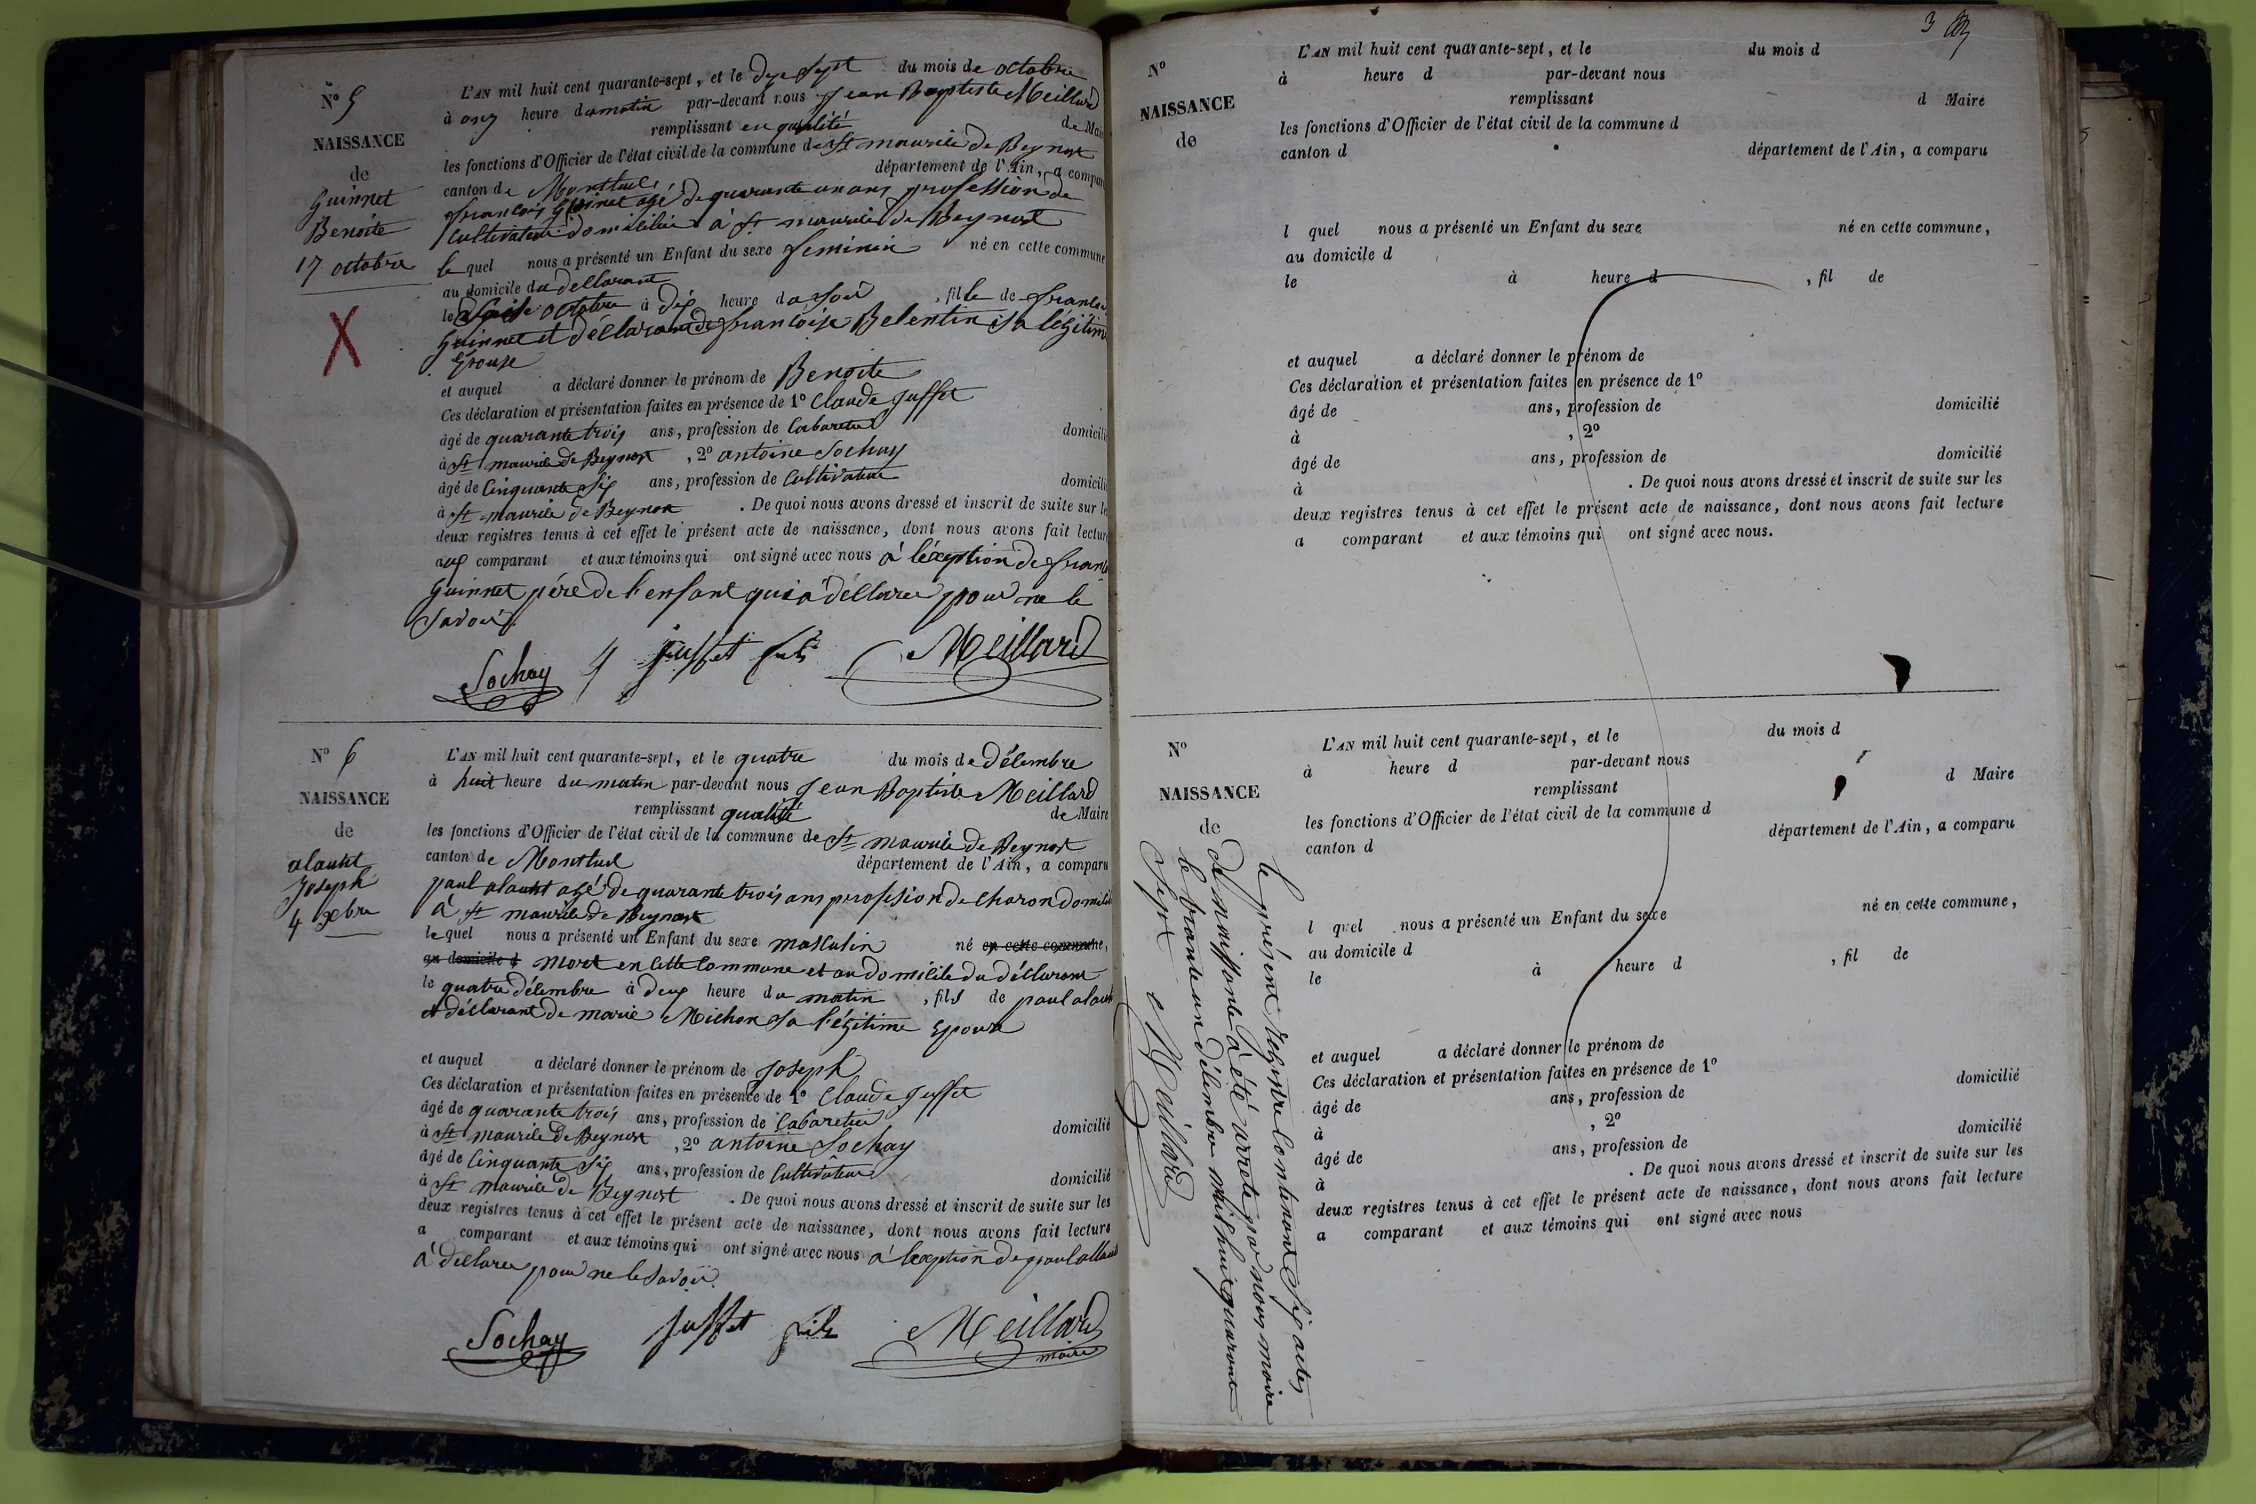 N° 5
NAISSANCE
de
Guinnet
Benoite
17 octobre
L'AN mil huit cent quarante-sept, et le dix sept du mois de octobre
à onz heure du matin par-devant nous Jean Baptiste Meillard
remplissant en qualité de Mai
les fonctions d'Officier de l'état civil de la commune de St maurice de Beynost
canton de Montluel département de l'Ain, a compar
françois Guinet agé de quarante un ans profession de
Cultivateur domicilié à St maurice de Beynost
le quel nous a présenté un Enfant du sexe feminin né en cette commune
au domicile du déclarant
le octobre à dix heure du soir , fille de
Guinnet et déclarant de françoise Belentin sa légitime
Epouse
et auquel a déclaré donner le prénom de Benoite
Ces déclaration et présentation faites en présence de 1° Claude Juffet
âgé de quarante trois ans, profession de Cabaretier domicili
à St maurice de Beynost , 2° antoine Sochay
âgé de Cinquante six ans, profession de Cultivateur domicili
à St maurice de Beynost . De quoi nous avons dressé et inscrit de suite sur le
deux registres tenus à cet effet le présent acte de naissance, dont nous avons fait lectur
aux comparant et aux témoins qui ont signé avec nous à l'exeption de
Guinnet père de l'enfant qui a déclarer pour ne le
Savoir.
Sochay Juffet fils Meillard
N° 6
NAISSANCE
de
alautst
Joseph
4 xbre
L'AN mil huit cent quarante-sept, et le quatre du mois de décembre
à huit heure du matin par-devant nous Jean Baptiste Meillard
remplissant qualité de Maire
les fonctions d'Officier de l'état civil de la commune de St maurice de Beynost
canton de Montluel département de l'Ain, a comparu
paul agé de quarante trois ans profession de Charon domicilié
à St maurice de Beynost
le quel nous a présenté un Enfant du sexe masculin né en cette commune,
au domicile d mort en cette Commune et au domicile du déclarant
le quatre décembre à deux heure du matin , fils de paul
et déclarant de marie Michon sa légitime Epouse
et auquel a déclaré donner le prénom de Joseph
Ces déclaration et présentation faites en présence de 1° Claude Juffet
âgé de quarante trois ans, profession de Cabaretier domicilié
à St maurice de Beynost , 2° antoine Sochay
âgé de Cinquante six ans, profession de Cultivateur domicilié
à St maurice de Beynost . De quoi nous avons dressé et inscrit de suite sur les
deux registres tenus à cet effet le présent acte de naissance, dont nous avons fait lecture
a comparant et aux témoins qui ont signé avec nous à l'exeption de paul
à déclarer pour ne le Savoir.
Sochay Juffet fils Meillard
maire
3
N°
NAISSANCE
de
L'AN mil huit cent quarante-sept, et le du mois d
à heure d par-devant nous
remplissant d Maire
les fonctions d'Officier de l'état civil de la commune d
canton d département de l'Ain, a comparu
l quel nous a présenté un Enfant du sexe né en cette commune,
au domicile d
le à heure d , fil de
et auquel a déclaré donner le prénom de
Ces déclaration et présentation faites en présence de 1°
âgé de ans, profession de domicilié
à , 2°
âgé de ans, profession de domicilié
à . De quoi nous avons dressé et inscrit de suite sur les
deux registres tenus à cet effet le présent acte de naissance, dont nous avons fait lecture
a comparant et aux témoins qui ont signé avec nous.
N°
NAISSANCE
de
L'AN mil huit cent quarante-sept, et le du mois d
à heure d par-devant nous
remplissant d Maire
les fonctions d'Officier de l'état civil de la commune d
canton d département de l'Ain, a comparu
l quel nous a présenté un Enfant du sexe né en cette commune,
au domicile d
le à heure d , fil de
et auquel a déclaré donner le prénom de
Ces déclaration et présentation faites en présence de 1°
âgé de ans, profession de domicilié
à , 2°
âgé de ans, profession de domicilié
à . De quoi nous avons dressé et inscrit de suite sur les
deux registres tenus à cet effet le présent acte de naissance, dont nous avons fait lecture
a comparant et aux témoins qui ont signé avec nous
Le présent Registre Contenant six actes
de naissante à été arrêté par nous maire
le trante un décembre mil huit quarant
Sept
Meillard